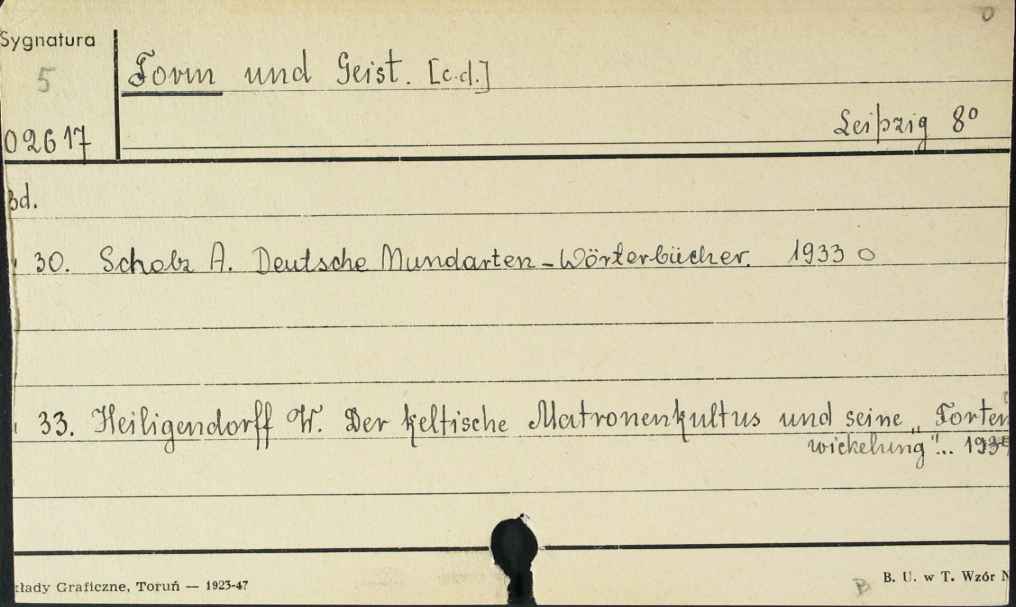 0
Sygnatura
5
Form und Geist. [c.d.]
Leipzig 8°
02617
Bd.
30. Scholz A. Deutsche Mundarten-Wörterbücher. 1933 0
33. Heiligendorff W. Der keltische Matronenkultus und seine „Forten
wickelung"... 1934
kłady Graficzne, Toruń — 1923-47
B
B. U. w T. Wzór N